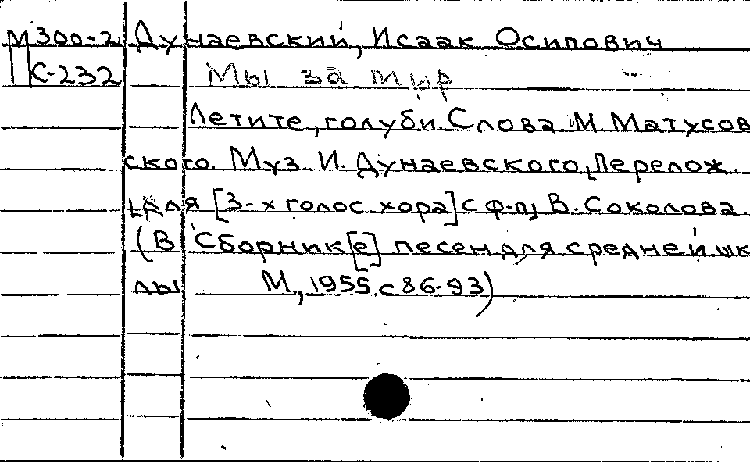 М300-2 Дунаевский, Исаак Осипович
С-232 Мы за мир
Летите, голуби. Слова М. Матусов
ского. Муз. И. Дунаевского, Перелож.
для [3-х голос. хора] с ф-п, В. Соколова.
(В Сборник[е] песен для средней шк
лы М., 1955. с 86-93)